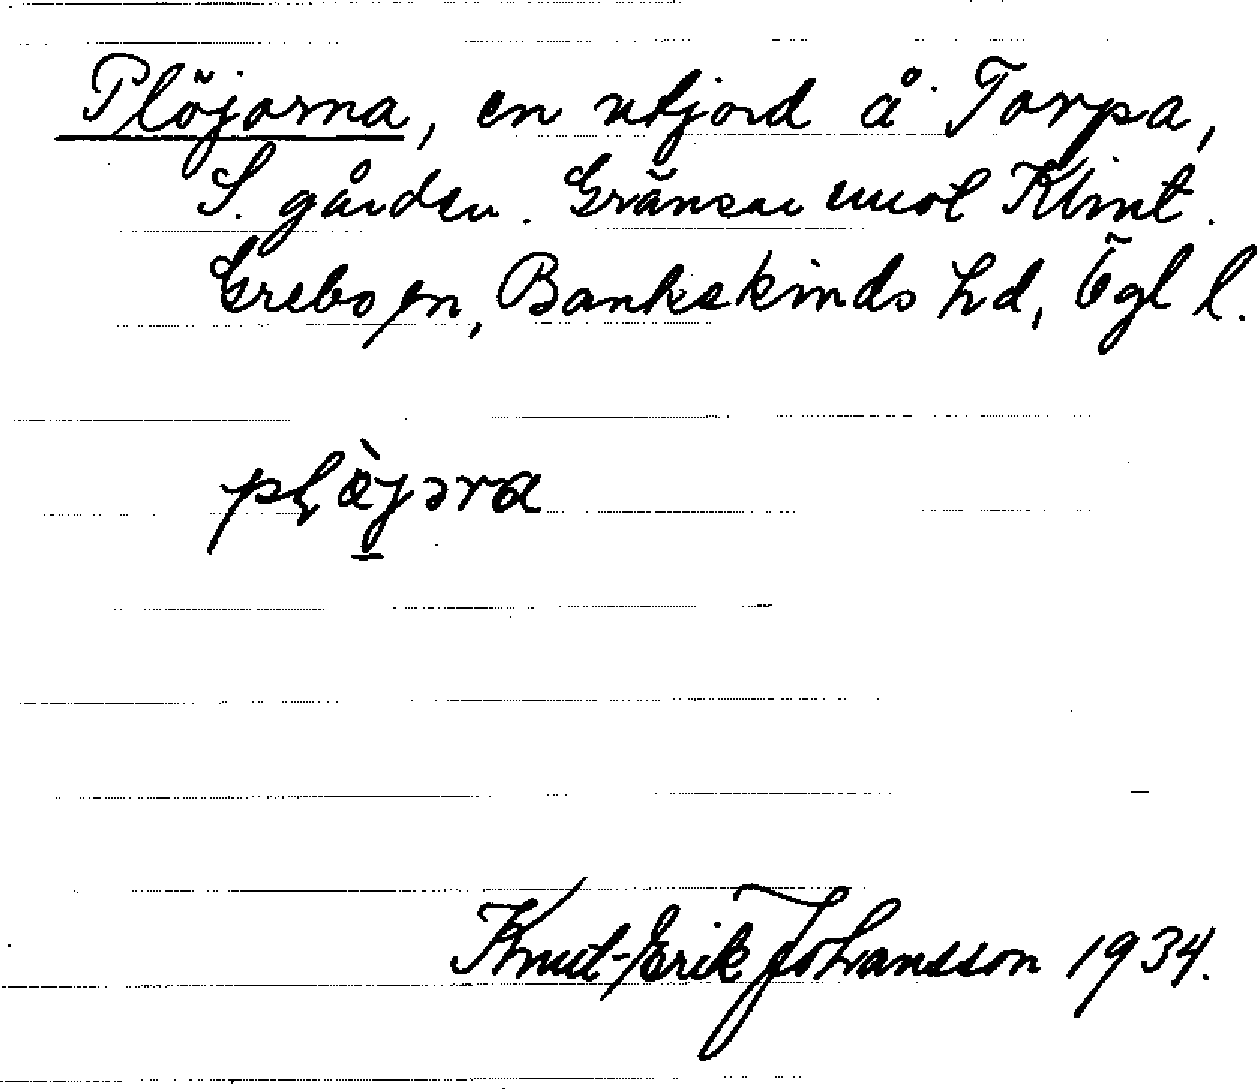 Plöjorna, en utjord å Torpa,
S. gården. Gränsar emot Klint.
Grebo sn, Bankekinds hd, Ögl l.
plöjəra
Knut-Erik Johansson 1934.